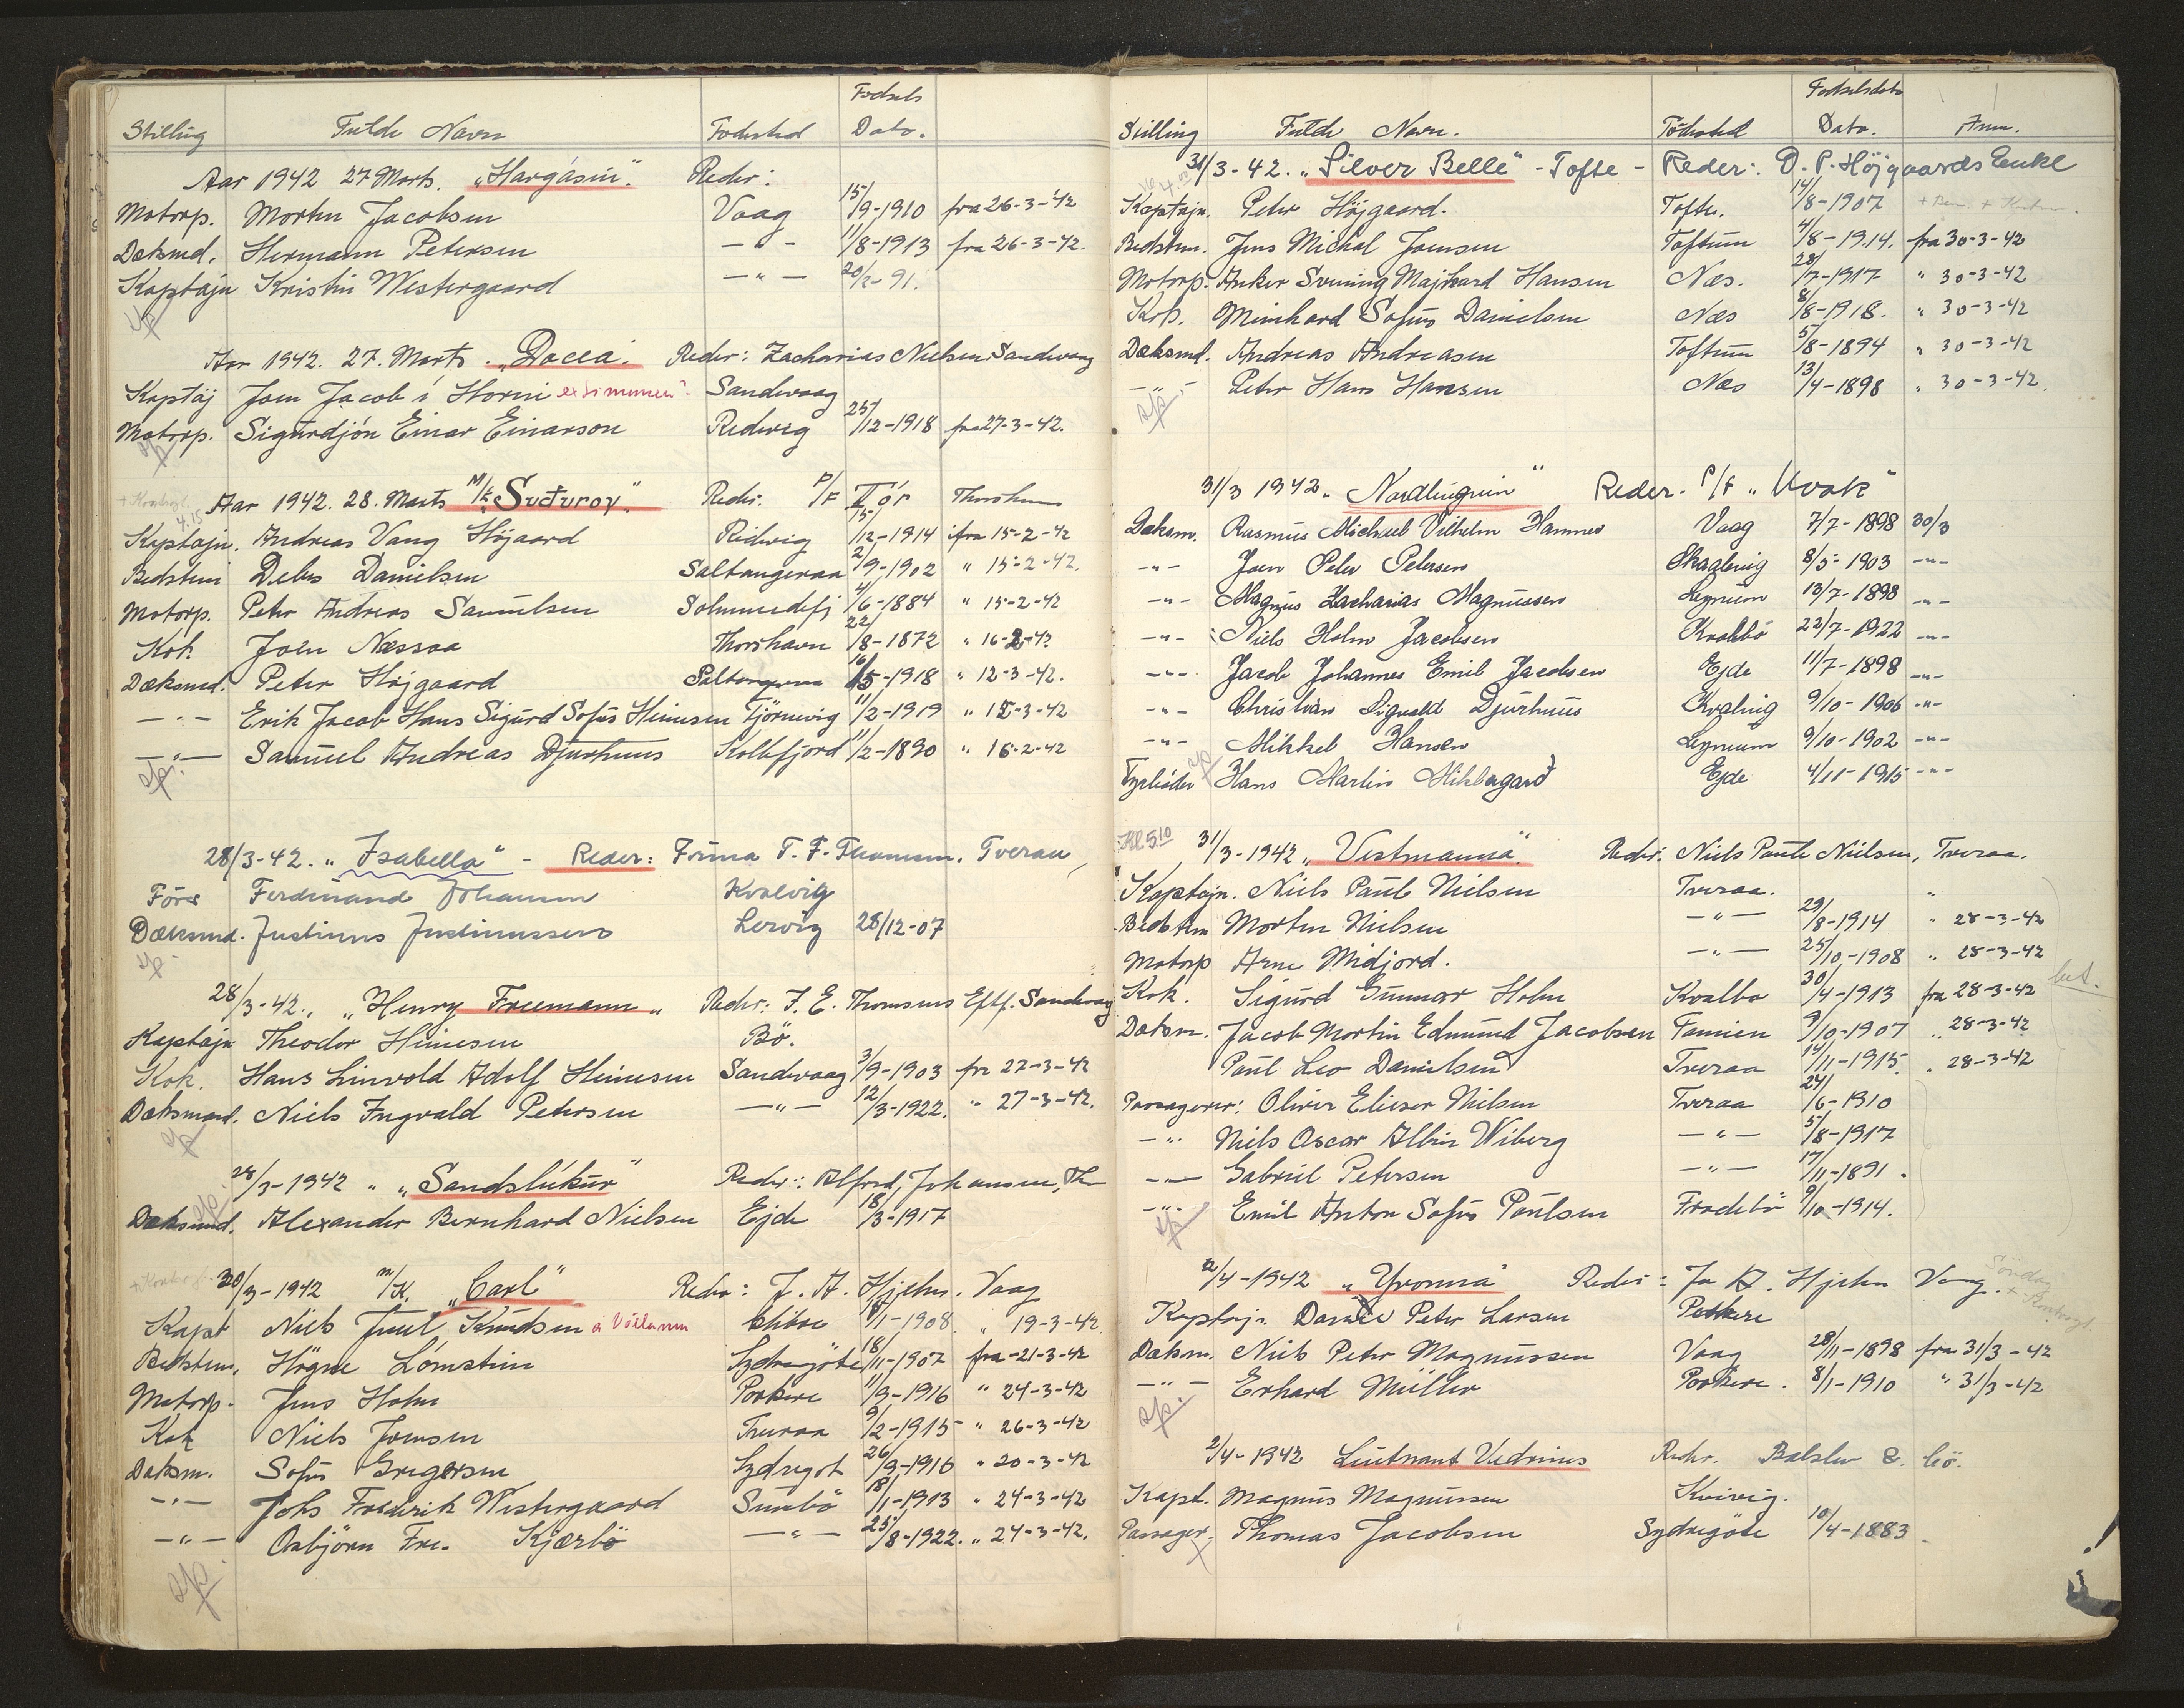 Stilling Fulde Navn Fødested Fødsels Dato.
Aar 1942 27 Marts. "Havgásin". Reder:
Motorp. Morten Jacobsen Vaag 15/9-1910 fra 26-3-42
Dæksmd. Hermann Petersen — " — 11/8-1913 fra 26-3-42.
Kaptajn Kristin Westergaard — " — 20/2-91.
Aar 1942. 27. Marts. "Docea". Reder: Zacharias Nielsen Sandevaag
Kaptaj Joen Jacob í Horni Sandevaag
Motorp. Sigurdjón Einar Einarson Redevig 25/12-1918 fra 27-3-42.
Aar 1942. 28. Marts M/K "Suðuroy". Reder: P/F Tór Thorshavn
Kaptajn. Andreas Vang Højaard Ridevig 15/12-1914 ifra 15-2-42
Bedstem Debes Danielsen Saltangeraa 2/9-1902 " 15-2-42.
Motorp. Peter Andreas Samuelsen Solmundefj 4/6-1884 " 15-2-42
Kok Joen Næssaa Thorshavn 22/8-1872 " 16-2-42
Dæksmd. Peter Højgaard Saltangeraa 16/5-1918 " 12-3-42.
— " — Erik Jacob Hans Sigurd Sofus Heinesen Tjørnevig 11/2-1919 " 12-3-42
— " — Samuel Andreas Djurhuus Kollefjord 11/2-1890 " 16-2-42
28/3-42. "Isabella" - Reder: Firma T. F. Thomsen. Tveraa
Förer Ferdinand Johansen Kvalvig
Dæksmd. Justinus Justinussen Lervig 28/12-07
28/3-42., "Henry Freemann" Reder: J. E. Thomsens Eftf. Sandevaag
Kaptajn Theodor Heinesen Bö.
Kok. Hans Linvold Adolf Heinesen Sandevaag 3/9-1903 fra 27-3-42
Dæksmand. Niels Ingvald Petersen — " — 12/3-1922. " 27-3-42.
28/3-1942 " "Sandslíkur" Reder: Alfred Johansen, Th
Dæksmd. Alexander Bernhard Nielsen Ejde 18/3-1917
30/3-1942 M/K. "Carl" Reder: J. A. Hjelm. Vaag
Kapt Niels Juul Knudsen 1/1-1908. " 19-3-42.
Bedstem. Högne Lómstein Sydregöte 18/11-1907 fra -21-3-42
Motorp. Jens Holm Porkere 11/3-1916 " 24-3-42
Kok Niels Joensen Tveraa 9/2-1915 " 26-3-42
Dæksm. Sofus Gregersen Sydregöt 26/9-1916 " 20-3-42
— " — Johs Fredrik Westergaard Sumbö 18/11-1913 " 24-3-42
— " — Osbjörn Fre. Kjærbö — " — 25/8-1922. " 24-3-42.
Stilling Fulde Navn. Fødested Fødselsdato Dato. Anm.
31/3-42. "Silver Belle" - Tofte - Reder: D. P. Höjgaards Enke
Kaptajn. Peter Höjgaard. Tofte. 14/8-1907
Bedstem. Jens Michal Joensen Toftum 4/8-1914. fra 30-3-42
Motorp. Anker Svenning Majhard Hansen Næs. 28/7-1917 " 30-3-42
Kok. Meinhard Sofus Danielsen Næs 8/8-1918. " 30-3-42
Dæksmd. Andreas Andreasen Toftum 5/8-1894 " 30-3-42
— " — Peter Hans Hansen Næs 13/4-1898 " 30-3-42.
31/3 1942. "Nordlingurin" Reder. P/F "Kvok"
Dæksm. Rasmus Michael Vilhelm Hammer Vaag 7/7-1898 30/3
- " - Joen Peter Petersen Skaalevig 8/5-1903 - " -
- " - Magnus Zacharias Magnussen Lynum 13/7-1898 - " -
- " - Niels Holm Jacobsen Kvalbö 22/7-1922 - " -
- " - Jacob Johannes Emil Jacobsen Ejde 11/7-1898 - " -
- " - Christian Sigvald Djurhuus Kvalvig 9/10-1906 - " -
- " - Mikkel Hansen Lynum 9/10-1902 - " -
Fyrböder Hans Martin Mikkelgard Ejde 4/11-1915 - " -
Kl. 5.10 31/3-1942 "Vestmanna". Reder. Niels Paule Nielsen, Tveraa.
Kaptajn. Niels Paule Nielsen Tveraa.
Bedstem Morten Nielsen — " — 29/8-1914 " 28-3-42
Motorp Arne Midjord. — " — 25/10-1908 " 28-3-42
Kok. Sigurd Gunnar Holm Kvalbø 30/4-1913 fra 28-3-42
Dæksm. Jacob Martin Edmund Jacobsen Famien 9/10-1907 " 28-3-42
Paul Leo Danielsen Tveraa 14/11-1915. " 28-3-42
Passagerer: Oliver Elieser Nielsen Tveraa 24/6-1910
— " — Niels Oscar Albin Wiberg — " — 5/8-1917
— " — Gabriel Petersen — " — 17/11-1891.
— " — Emil Anton Sofus Poulsen Frodebö 9/10-1914.
2/4-1942 "Yvonna" Reder: J. A. Hjelm Vaag.
Kaptajn. Daniel Peter Larsen Porkere
Dæksm. Niels Peter Magnussen Vaag 28/11-1898 fra 31/3-42
— " — Erhard Müller Porkere. 8/1-1910 " 31/3-42
2/4-1942 Lieutnant Vedrines Reder. Balslev & Cö.
Kapt. Magnus Magnussen Kvivig.
Passager. Thomas Jacobsen Sydregöte 10/4-1883.